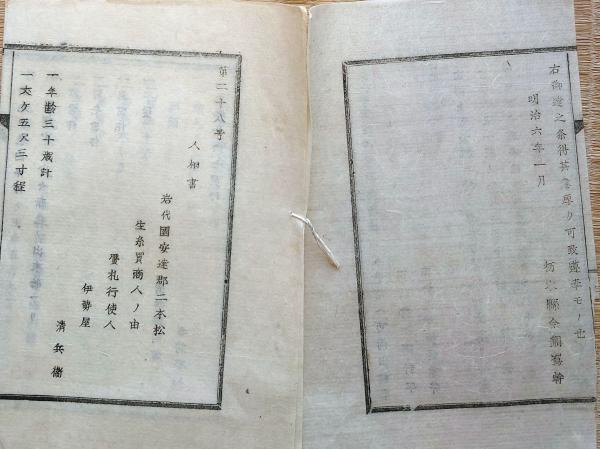 右御達之条得其意厚ク可致遵奉モノ也
明治六年一月
栃木縣令鍋島幹
第二十八号
人相書
岩代國安達郡二本松
生糸買商人ノ由
贋札行使人
伊勢屋
清兵衞
一年齢三十歳計
一丈ケ五尺三寸程